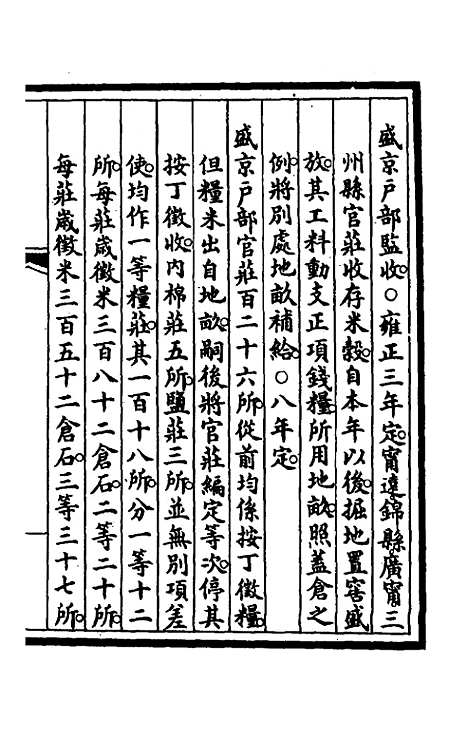 盛京戶部監收。○雍正三年定。甯遠錦縣廣甯三
州縣官莊收存米穀。自本年以後。掘地置窖盛
放。其工料動支正項錢糧。所用地畝。照蓋倉之
例。將別處地畝補給。○八年定。
盛京戶部官莊百二十六所。從前均係按丁徵糧。
但糧米出自地畝。嗣後將官莊編定等次。停其
按丁徵收。內棉莊五所。鹽莊三所。並無別項差
使。均作一等糧莊。其一百十八所。分一等十二
所。每莊歲徵米三百八十二倉石。二等二十所。
每莊歲徵米三百五十二倉石。三等三十七所。